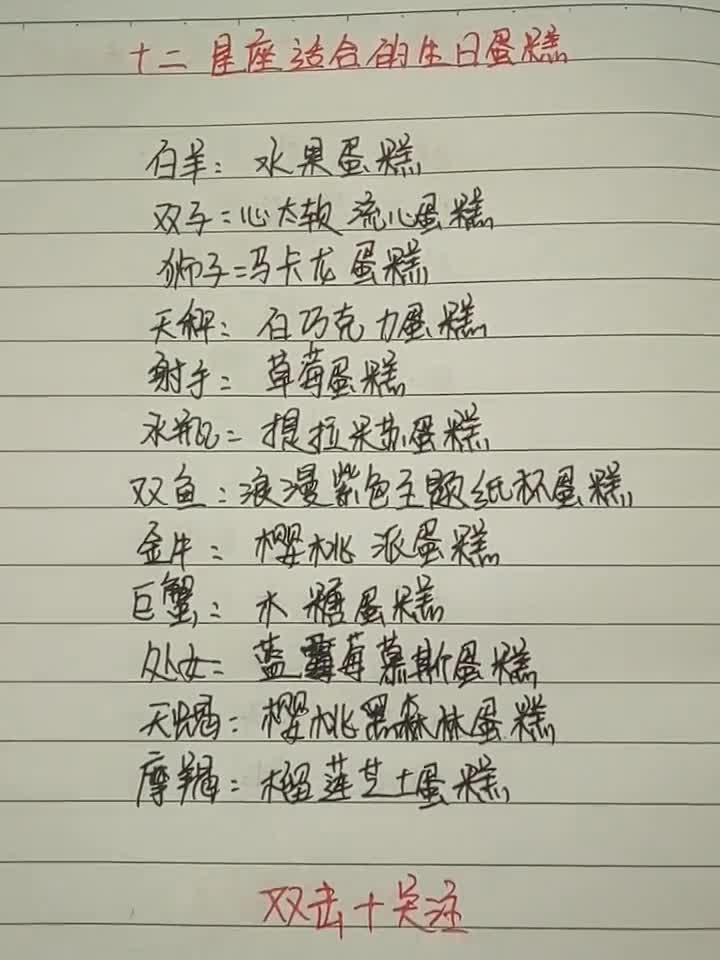 十二星座适合的生日蛋糕
白羊：水果蛋糕
双子：心太软流心蛋糕
狮子：马卡龙蛋糕
天秤：白巧克力蛋糕
射手：草莓蛋糕
水瓶：提拉米苏蛋糕
双鱼：浪漫紫色主题纸杯蛋糕
金牛：樱桃派蛋糕
巨蟹：木糖蛋糕
处女：蓝莓慕斯蛋糕
天蝎：樱桃黑森林蛋糕
摩羯：榴莲芝士蛋糕
双击+关注